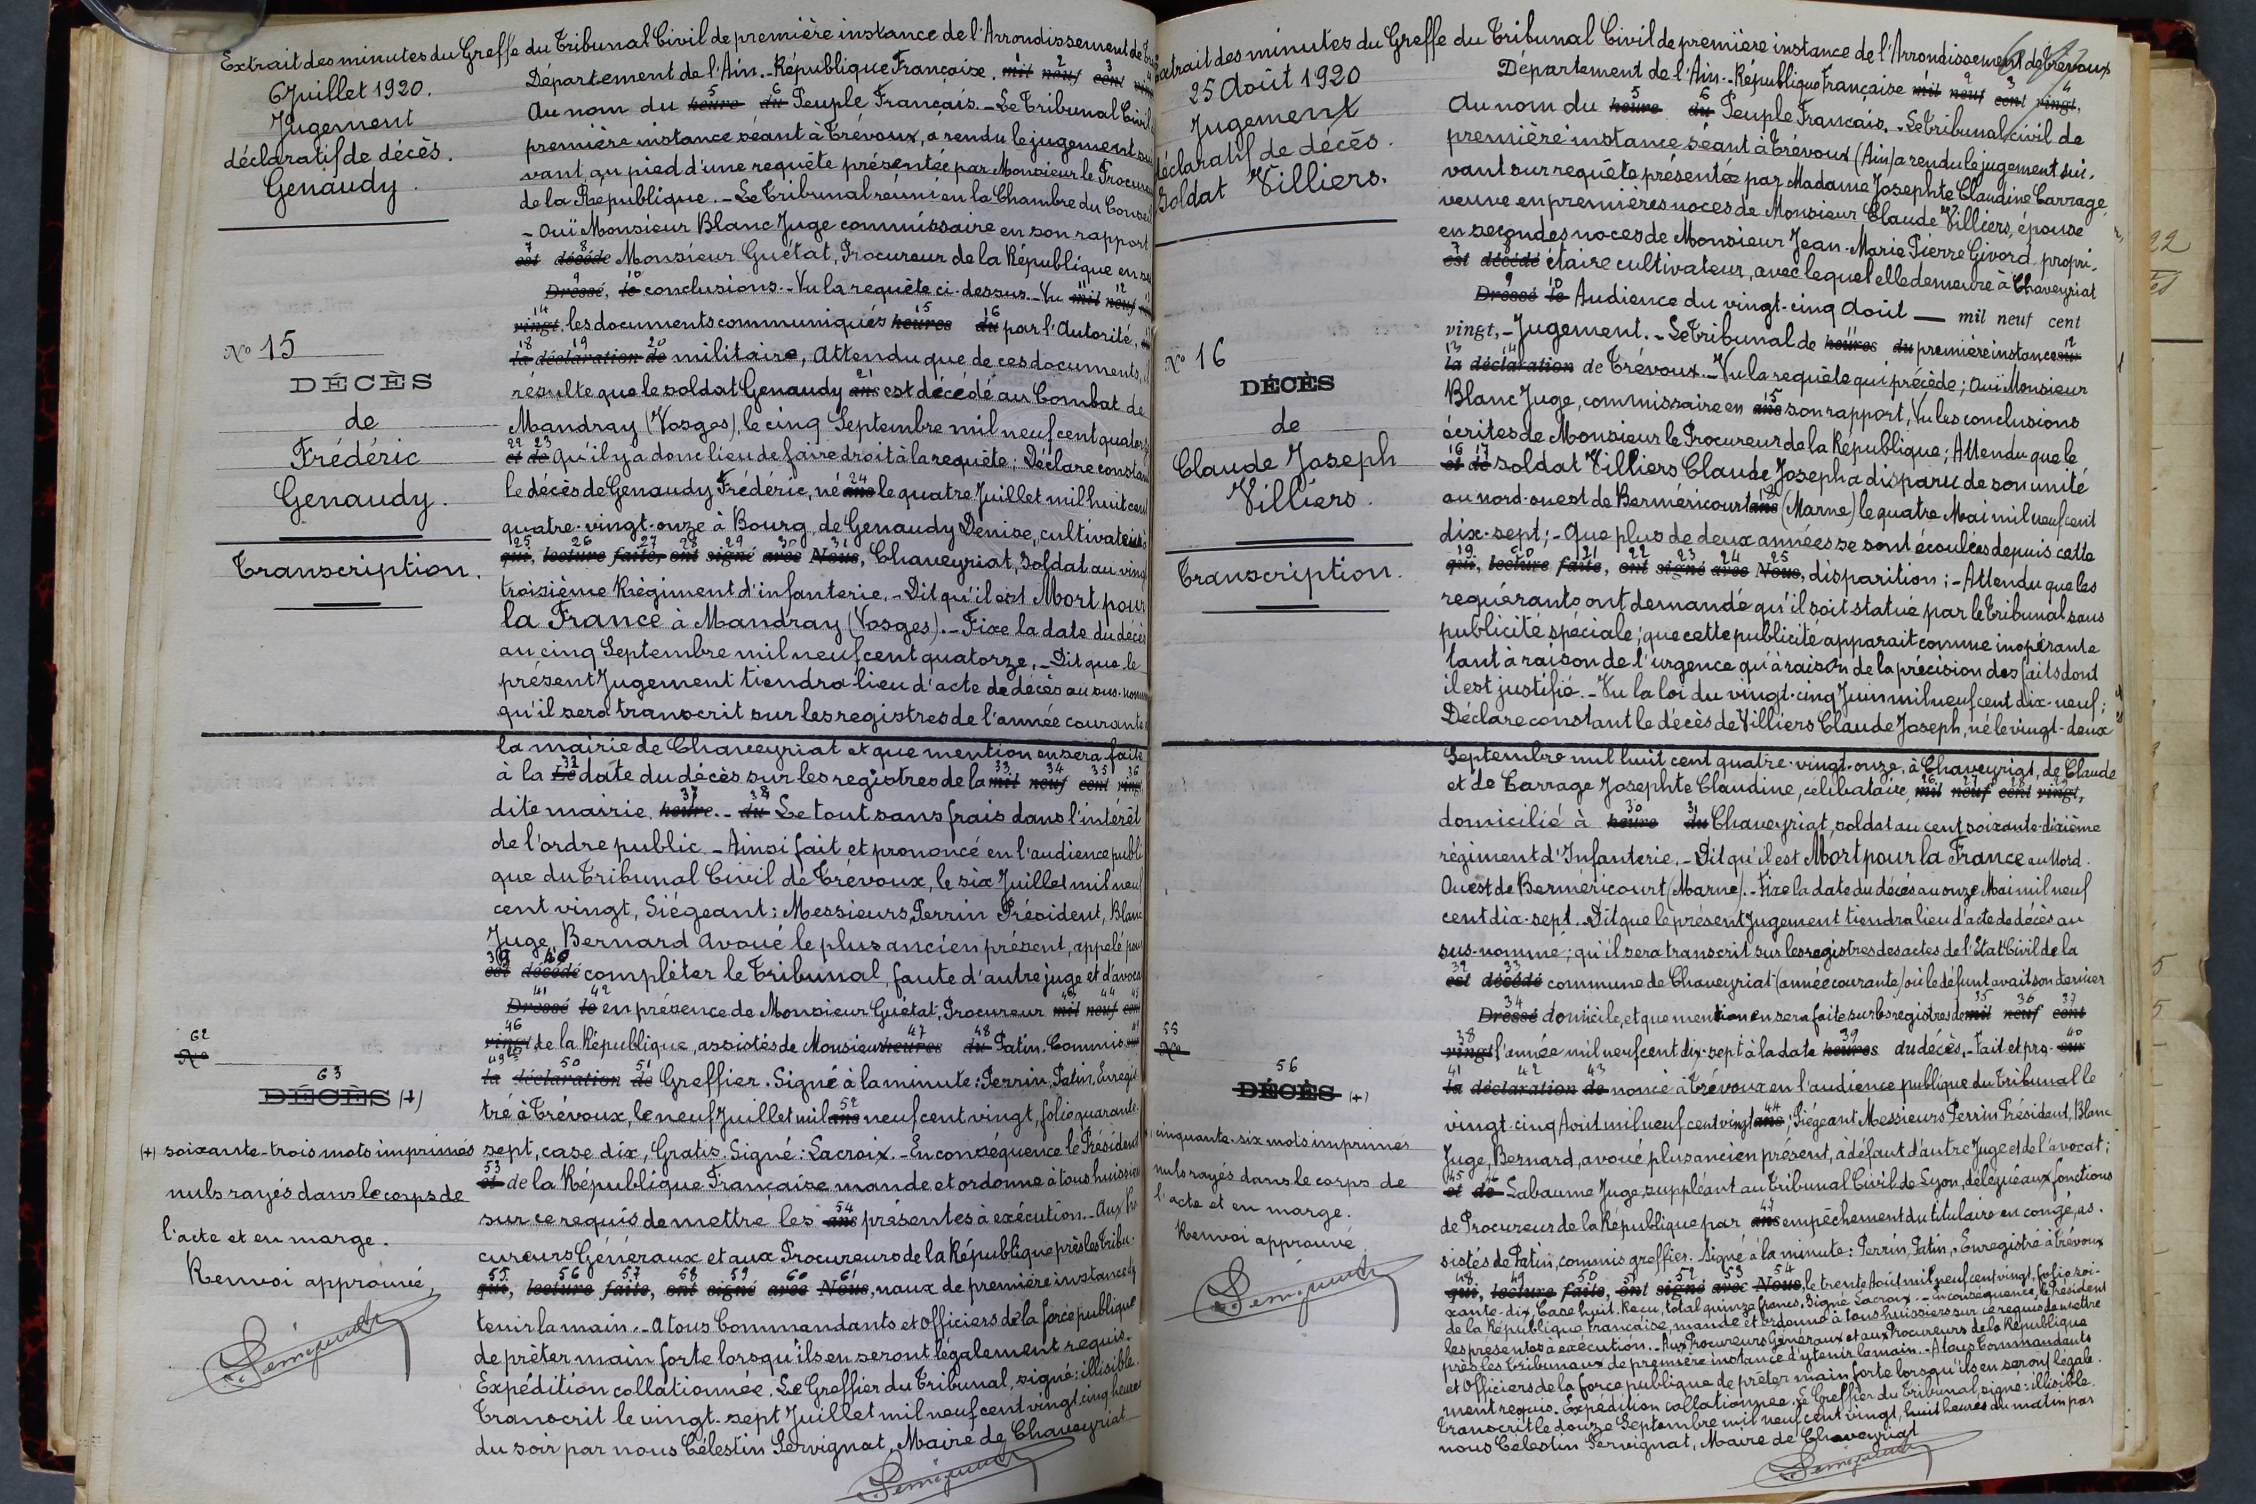 Extrait des minutes du Greffe du Tribunal Civil de première instance de l'Arrondissement de
6 Juillet 1920.
Jugement
déclaratif de décès.
Genaudy.
N° 15
DÉCÈS
de
Frédéric
Genaudy.
Transcription.
Département de l'Ain. - République Française. mil neuf cent
Au nom du heure du Peuple Français. - Le Tribunal Civil
première instance séant à Trévoux, a rendu le jugement
vant, au pied d'une requête présentée par Monsieur le Procureur
de la République. - Le Tribunal réuni en la Chambre du Conseil
- Ouï Monsieur Blanc Juge commissaire en son rapport
est décédé Monsieur Guétat, Procureur de la République en
Dressé, le conclusions. - Vu la requête ci-dessus. - Vu mil neuf
vingt, les documents communiqués heures du par l'Autorité,
la déclaration de militaire, Attendu que de ces documents,
résulte que le soldat Genaudy ans est décédé au Combat de
Mandray (Vosges), le cinq Septembre mil neuf cent quatorze
et de qu'il y a donc lieu de faire droit à la requête; Déclare constant
le décès de Genaudy Frédéric, né ans le quatre Juillet mil huit cent
quatre-vingt-onze à Bourg, de Genaudy Denise, cultivateur
qui, lecture faite, ont signé avec Nous, Chaveyriat, soldat au vingt
troisième Régiment d'infanterie. - Dit qu'il est Mort pour
la France à Mandray (Vosges). - Fixe la date du décès
au cinq Septembre mil neuf cent quatorze. - Dit que le
présent Jugement tiendra lieu d'acte de décès au sus-nommé
qu'il sera transcrit sur les registres de l'année courante
la mairie de Chaveyriat et que mention en sera faite
à la Le date du décès sur les registres de la mil neuf cent vingt
dite mairie. heure. - du Le tout sans frais dans l'intérêt
de l'ordre public. - Ainsi fait et prononcé en l'audience publi
que du Tribunal Civil de Trévoux, le six Juillet mil neuf
cent vingt, Siégeant: Messieurs, Perrin Président, Blanc
Juge, Bernard avoué le plus ancien présent, appelé pour
est décédé compléter le Tribunal, faute d'autre juge et d'avocat
Dressé le en présence de Monsieur Guétat, Procureur mil neuf cent
vingt, de la République, assistés de Monsieur heures du Patin. Commis
la déclaration de Greffier. Signé à la minute: Perrin, Patin, Enregis
tré à Trévoux, le neuf Juillet mil ans neuf cent vingt, folio quarante-
sept, case dix, Gratis. Signé: Lacroix. - En conséquence le Président
et de la République Française mande et ordonne à tous huissiers
sur ce requis de mettre les ans présentes à exécution. - Aux Pro
cureurs Généraux et aux Procureurs de la République près les Tribu-
qui, lecture faite, ont signé avec Nous, naux de première instance d'y
tenir la main. - A tous Commandants et Officiers de la force publique
de prêter main forte lorsqu'ils en seront légalement requis.
Expédition collationnée. Le Greffier du Tribunal, signé: illisible.
Transcrit le vingt-sept Juillet mil neuf cent vingt, cinq heures
du soir par nous Célestin Servignat, Maire de Chaveyriat
62
N°
63
DÉCÈS (+)
(+) soixante-trois mots imprimés
nuls rayés dans le corps de
l'acte et en marge.
Renvoi approuvé,
Extrait des minutes du Greffe du Tribunal Civil de première instance de l'Arrondissement de Trévoux
25 Août 1920
Jugement
déclaratif de décès.
Soldat Villiers.
N° 16
DÉCÈS
de
Claude Joseph
Villiers.
Transcription.
Département de l'Ain. - République Française mil neuf cent vingt,
Au nom du heure du Peuple Français. - Le Tribunal civil de
première instance séant à Trévoux (Ain) a rendu le jugement sui-
vant sur requête présentée par Madame Josephte Claudine Carrage,
veuve en premières noces de Monsieur Claude Villiers, épouse
en secondes noces de Monsieur Jean-Marie Pierre Givord, propri-
est décédé étaire cultivateur, avec lequel elle demeure à Chaveyriat
Dressé le Audience du vingt-cinq Août — mil neuf cent
vingt, - Jugement. - Le Tribunal de heures du première instance sur
la déclaration de Trévoux. - Vu la requête qui précède; Ouï Monsieur
Blanc Juge, commissaire en ans son rapport, Vu les conclusions
écrites de Monsieur le Procureur de la République; Attendu que le
et de soldat Villiers Claude Joseph a disparu de son unité
au nord-ouest de Berméricourt ans (Marne) le quatre Mai mil neuf cent
dix-sept; - Que plus de deux années se sont écoulées depuis cette
qui, lecture faite, ont signé avec Nous, disparition; - Attendu que les
requérants ont demandé qu'il soit statué par le Tribunal sans
publicité spéciale; que cette publicité apparait comme inopérante
tant à raison de l'urgence qu'à raison de la précision des faits dont
il est justifié. - Vu la loi du vingt-cinq Juin mil neuf cent dix-neuf;
Déclare constant le décès de Villiers Claude Joseph, né le vingt-deux
Septembre mil huit cent quatre-vingt-onze, à Chaveyriat, de Claude
et de Carrage Josephte Claudine, célibataire, mil neuf cent vingt,
domicilié à heure du Chaveyriat, soldat au cent soixante-dixième
régiment d'Infanterie. - Dit qu'il est Mort pour la France au Nord-
Ouest de Berméricourt (Marne). - Fixe la date du décès au onze Mai mil neuf
cent dix-sept. - Dit que le présent Jugement tiendra lieu d'acte de décès au
sus-nommé; qu'il sera transcrit sur les registres des actes de l'Etat Civil de la
est décédé commune de Chaveyriat (année courante) où le défunt avait son dernier
Dressé domicile, et que mention en sera faite sur les registres de mil neuf cent
vingt l'année mil neuf cent dix-sept à la date heures du décès, - Fait et pro- sur
la déclaration de noncé à Trévoux en l'audience publique du Tribunal le
vingt-cinq Août mil neuf cent vingt ans; Siégeant Messieurs Perrin Président, Blanc
Juge, Bernard, avoué plus ancien présent, à défaut d'autre Juge et de l'avocat;
et de Labaume Juge suppléant au Tribunal Civil de Lyon, délégué aux fonctions
de Procureur de la République par ans empêchement du titulaire en congé, as-
sistés de Patin, commis greffier. Signé à la minute: Perrin, Patin, - Enregistré à Trévoux
qui, lecture faite, ont signé avec Nous, le trente Août mil neuf cent vingt, folio soi-
xante-dix, Case huit. Reçu, total quinze francs. Signé Lacroix. - En conséquence, le Président
de la République Française, mande et ordonne à tous huissiers sur ce requis de mettre
les présentes à exécution. - Aux Procureurs Généraux et aux Procureurs de la République
près les Tribunaux de première instance d'y tenir la main. - A tous Commandants
et Officiers de la force publique de prêter main forte lorsqu'ils en seront légale-
ment requis. Expédition collationnée. Le Greffier du Tribunal, signé: illisible.
Transcrit le douze Septembre mil neuf cent vingt, huit heures du matin par
nous Célestin Servignat, Maire de Chaveyriat
55
N°
56
DÉCÈS (+)
cinquante-six mots imprimés
nuls rayés dans le corps de
l'acte et en marge.
Renvoi approuvé